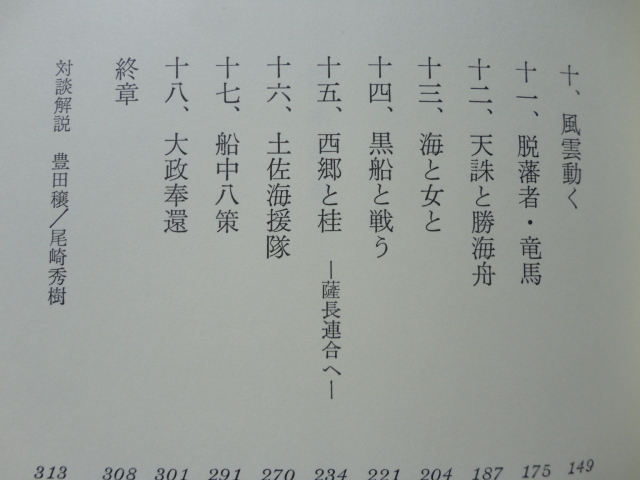 十、風雲動く 149
十一、脱藩者・竜馬 175
十二、天誅と勝海舟 187
十三、海と女と 204
十四、黒船と戦う 221
十五、西郷と桂 ―薩長連合へ― 234
十六、土佐海援隊 270
十七、船中八策 291
十八、大政奉還 301
終章 308
対談解説 豊田穣/尾崎秀樹 313